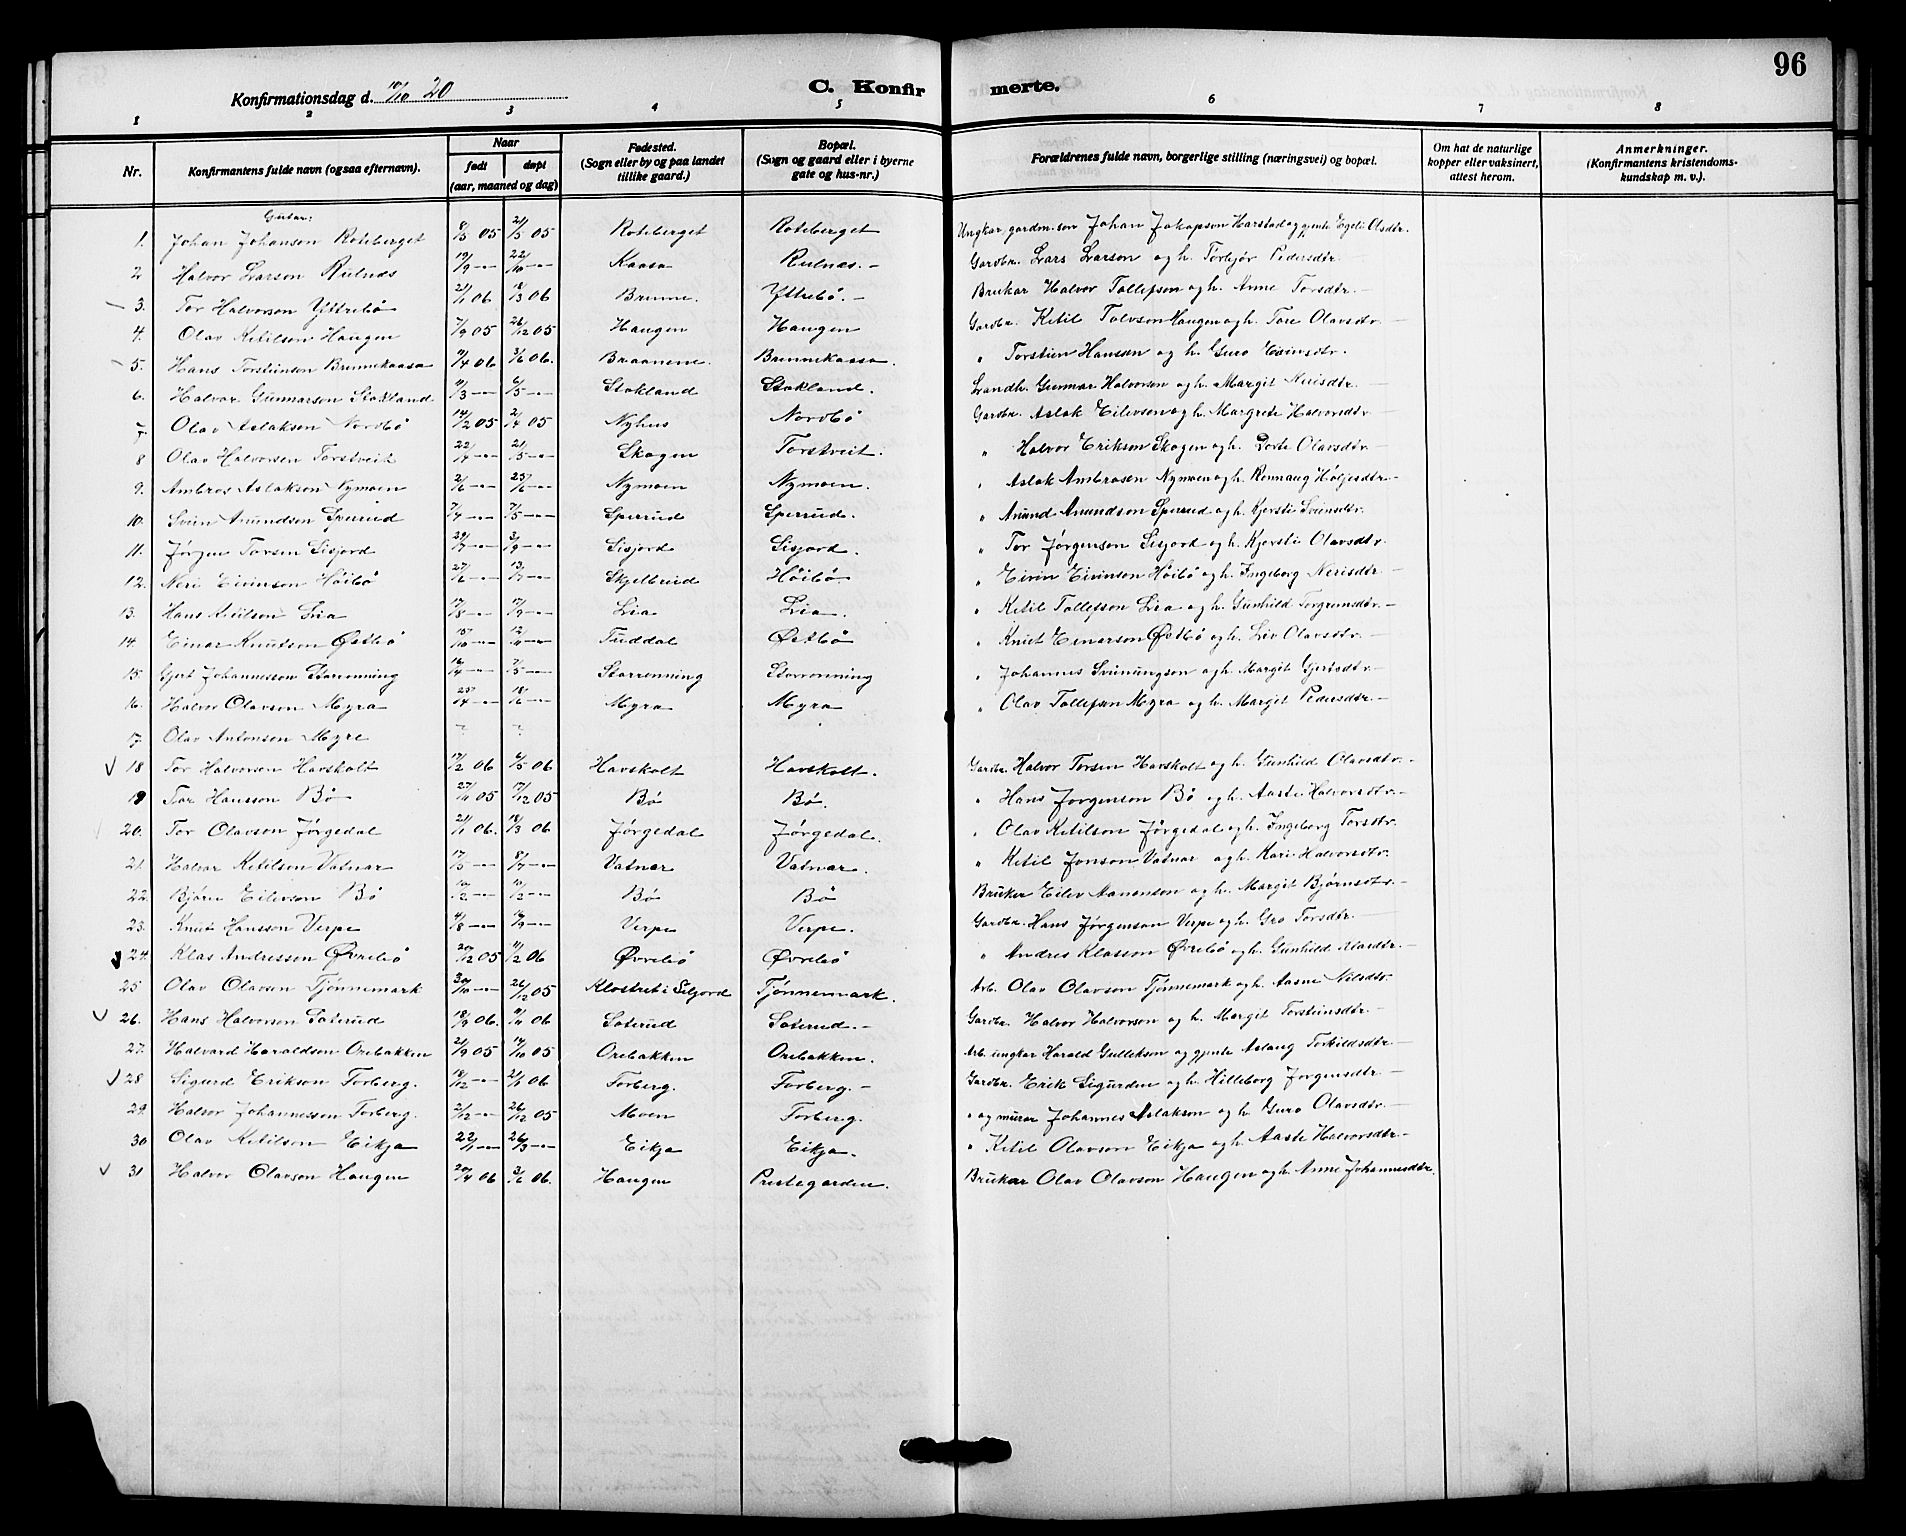 96
Konfirmationsdag d. 10/10 20
C. Konfirmerte.
1 2 3 4 5 6 7 8
Nr. Konfirmantens fulde navn (ogsaa efternavn). Naar født døpt (aar, maaned og dag) Fødested. (Sogn eller by og paa landet tillike gaard.) Bopæl. (Sogn og gaard eller i byerne gate og hus-nr.) Forældrenes fulde navn, borgerlige stilling (næringsvei) og bopæl. Om hat de naturlige kopper eller vaksinert, attest herom. Anmerkninger. (Konfirmantens kristendoms-kundskap m. v.).
Gutar:
1. Johan Johanson Roteberget 8/5 05 21/5 05 Roteberget Roteberget Ungkar, gardm. son Johan Jakopson Harstad og gjente Egeli Olsdtr.
2 Halvor Larson Rulnes 19/9 -"- 22/10 -"- Kaasa Rulnæs. - Gardbr. Lars Larson og h. Torbjør Pedersdtr.
3. Tor Halvorson Yttrebø 21/1 06 18/3 06 Brenne. Yttrebø. - Brukar Halvor Tallefson og h. Anne Torsdtr.
4. Olav Ketilson Haugen 7/9 05 26/12 05 Haugen Haugen Gardbr. Ketil Tolvson Haugen og h. Tore Olavsdtr.
5. Hans Torsteinson Brennekaasa 9/4 06 3/6 06. Braanene. Brennekaasa. " Torstein Hansson og h. Guro Eivinsdtr.
6. Halvor Gunnarson Stokland 11/3 -"- 6/5 -"- Stokland Stokland. Landh. Gunnar Halvorson og h. Margit Nerisdtr.
7. Olav Aslaksen Nordbø 14/2 05 2/4 05 Nyhus Nordbø Gardbr. Aslak Eilevson og h. Margrete Halvorsdtr.
8 Olav Halvorsen Torstveit 22/4 -"- 21/5 -"- Skogen Torstveit. " Halvor Erikson Skogen og h. Dorte Olavsdtr.
9. Ambros Aslakson Nymoen 2/6 -"- 25/6 -"- Nymoen Nymoen. " Aslak Ambrosen Nymoen og h. Rennaug Høljesdtr.
10. Svein Anundson Sperrud 7/4 -"- 7/5 -"- Sperrud Sperrud. " Anund Anundson Sperrud og h. Kjersti Sveinsdtr.
11. Jørgen Torsen Sisjord 29/7 -"- 3/9 -"- Sisjord Sisjord. " Tor Jørgenson Sisjord og h. Kjersti Olavsdtr.
12. Neri Eivinson Høibø 27/6 -"- 13/7 -"- Skjelbreid Høibø " Eivin Eivinson Høibø og h. Ingeborg Nerisdtr.
13. Hans Lia 17/8 -"- 17/9 -"- Lia Lia. " Ketil Tollefson Lia og h. Gunhild Torgrimsdtr.
14. Einar Knutson Østbø 15/10 -"- 12/11 -"- Tuddal Østbø " Knut Einarson Østbø og h. Liv Olavsdtr.
15. Gjert Johannesson Storrønning 16/4 -"- 7/5 -"- Storrønning Storrønning " Johannes Sveinungson og h. Margit Gjertsdtr.
16. Halvor Olavson Myra 25/4 -"- 18/6 -"- Myra Myra " Olav Tallefsen Myra og h. Margit Pedersdtr.
17. Olav Antonsen Myre
18 Tor Halvorsen Havskolt 17/2 06 6/5 06 Havskolt Havskolt. Gardbr. Halvor Torsen Havskolt og h. Gunhild Olavsdtr.
19 Tor Hansson Bø 27/11 05 17/12 05 Bø Bø. " Hans Jørgenson Bø og h. Aaste Halvorsdtr.
20. Tor Olavson Jørgedal 21/1 06. 18/3 06 Jørgedal Jørgedal. " Olav Ketilson Jørgedal og h. Ingeborg Torsdtr.
21. Halvor Ketilson Vatnar 17/5 -"- 8/7 -"- Vatnar Vatnar. " Ketil Jonson Vatnar og h. Kari Halvorsdtr.
22. Bjørn Eilevson Bø /2 -"- /2 -"- Bø Bø Bruker Eilev Aanonson og h. Margit Bjørnsdtr.
23. Knut Hansson Verpe 4/8 -"- /9 -"- Verpe Verpe. Gardbr. Hans Jørgenson Verpe og h. Gro Torsdtr.
24. Klas Andresson Øvrebø 20/12 05 11/2 06 Øvrebø Øvrebø " Andres Klasson Øvrebø og h. Gunhild Alasdtr.
25 Olav Olavson Tjønnemark 30/10 -"- 26/12 05 Klostret i Seljord Tjønnemark. Arb. Olav Olavson Tjønnemark og h. Aasne Nilsdtr.
26. Hans Halvorsen Soterud 18/9 06. /11 06 Soterud Soterud. - Gardbr. Halvor Halvorson og h. Margit Torsteinsdtr.
27. Halvard Haraldson Orebakken 21/9 05 14/10 05 Orebakken Orebakken. Arb. ungkar Harald Gulleksen og gjente Aslaug Torkildsdtr.
28 Sigurd Erikson Torberg. 18/12 -"- 21/1 06 Torberg. Torberg. - Gardbr. Erik Sigurden og h. Hilleborg Jørgensdtr.
29. Halvor Johannessen Torberg. 2/12 -"- 26/12 05 Moen Torberg. " og murer Johannes Aslakson og h. Guro Olavsdtr.
30 Olav Ketilson Eikja 22/1 -"- 26/3 -"- Eikja Eikja. " Ketil Olavson Eikja og h. Aaste Halvorsdtr.
31 Halvor Olavson Haugen 20/4 06 3/6 06. Haugen Prestegarden. Brukar Olav Olavson Haugen og h. Anne Johannesdtr.